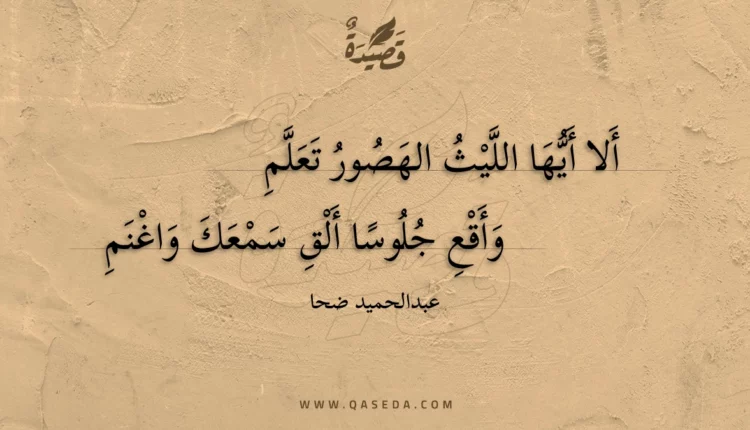 قَصِيدَةٌ
أَلا أَيُّهَا اللَّيْثُ الهَصُورُ تَعَلَّمِ
وَأَقْعِ جُلُوسًا أَلْقِ سَمْعَكَ وَاغْنَمِ
عبدالحميد ضحا
WWW.QASEDA.COM